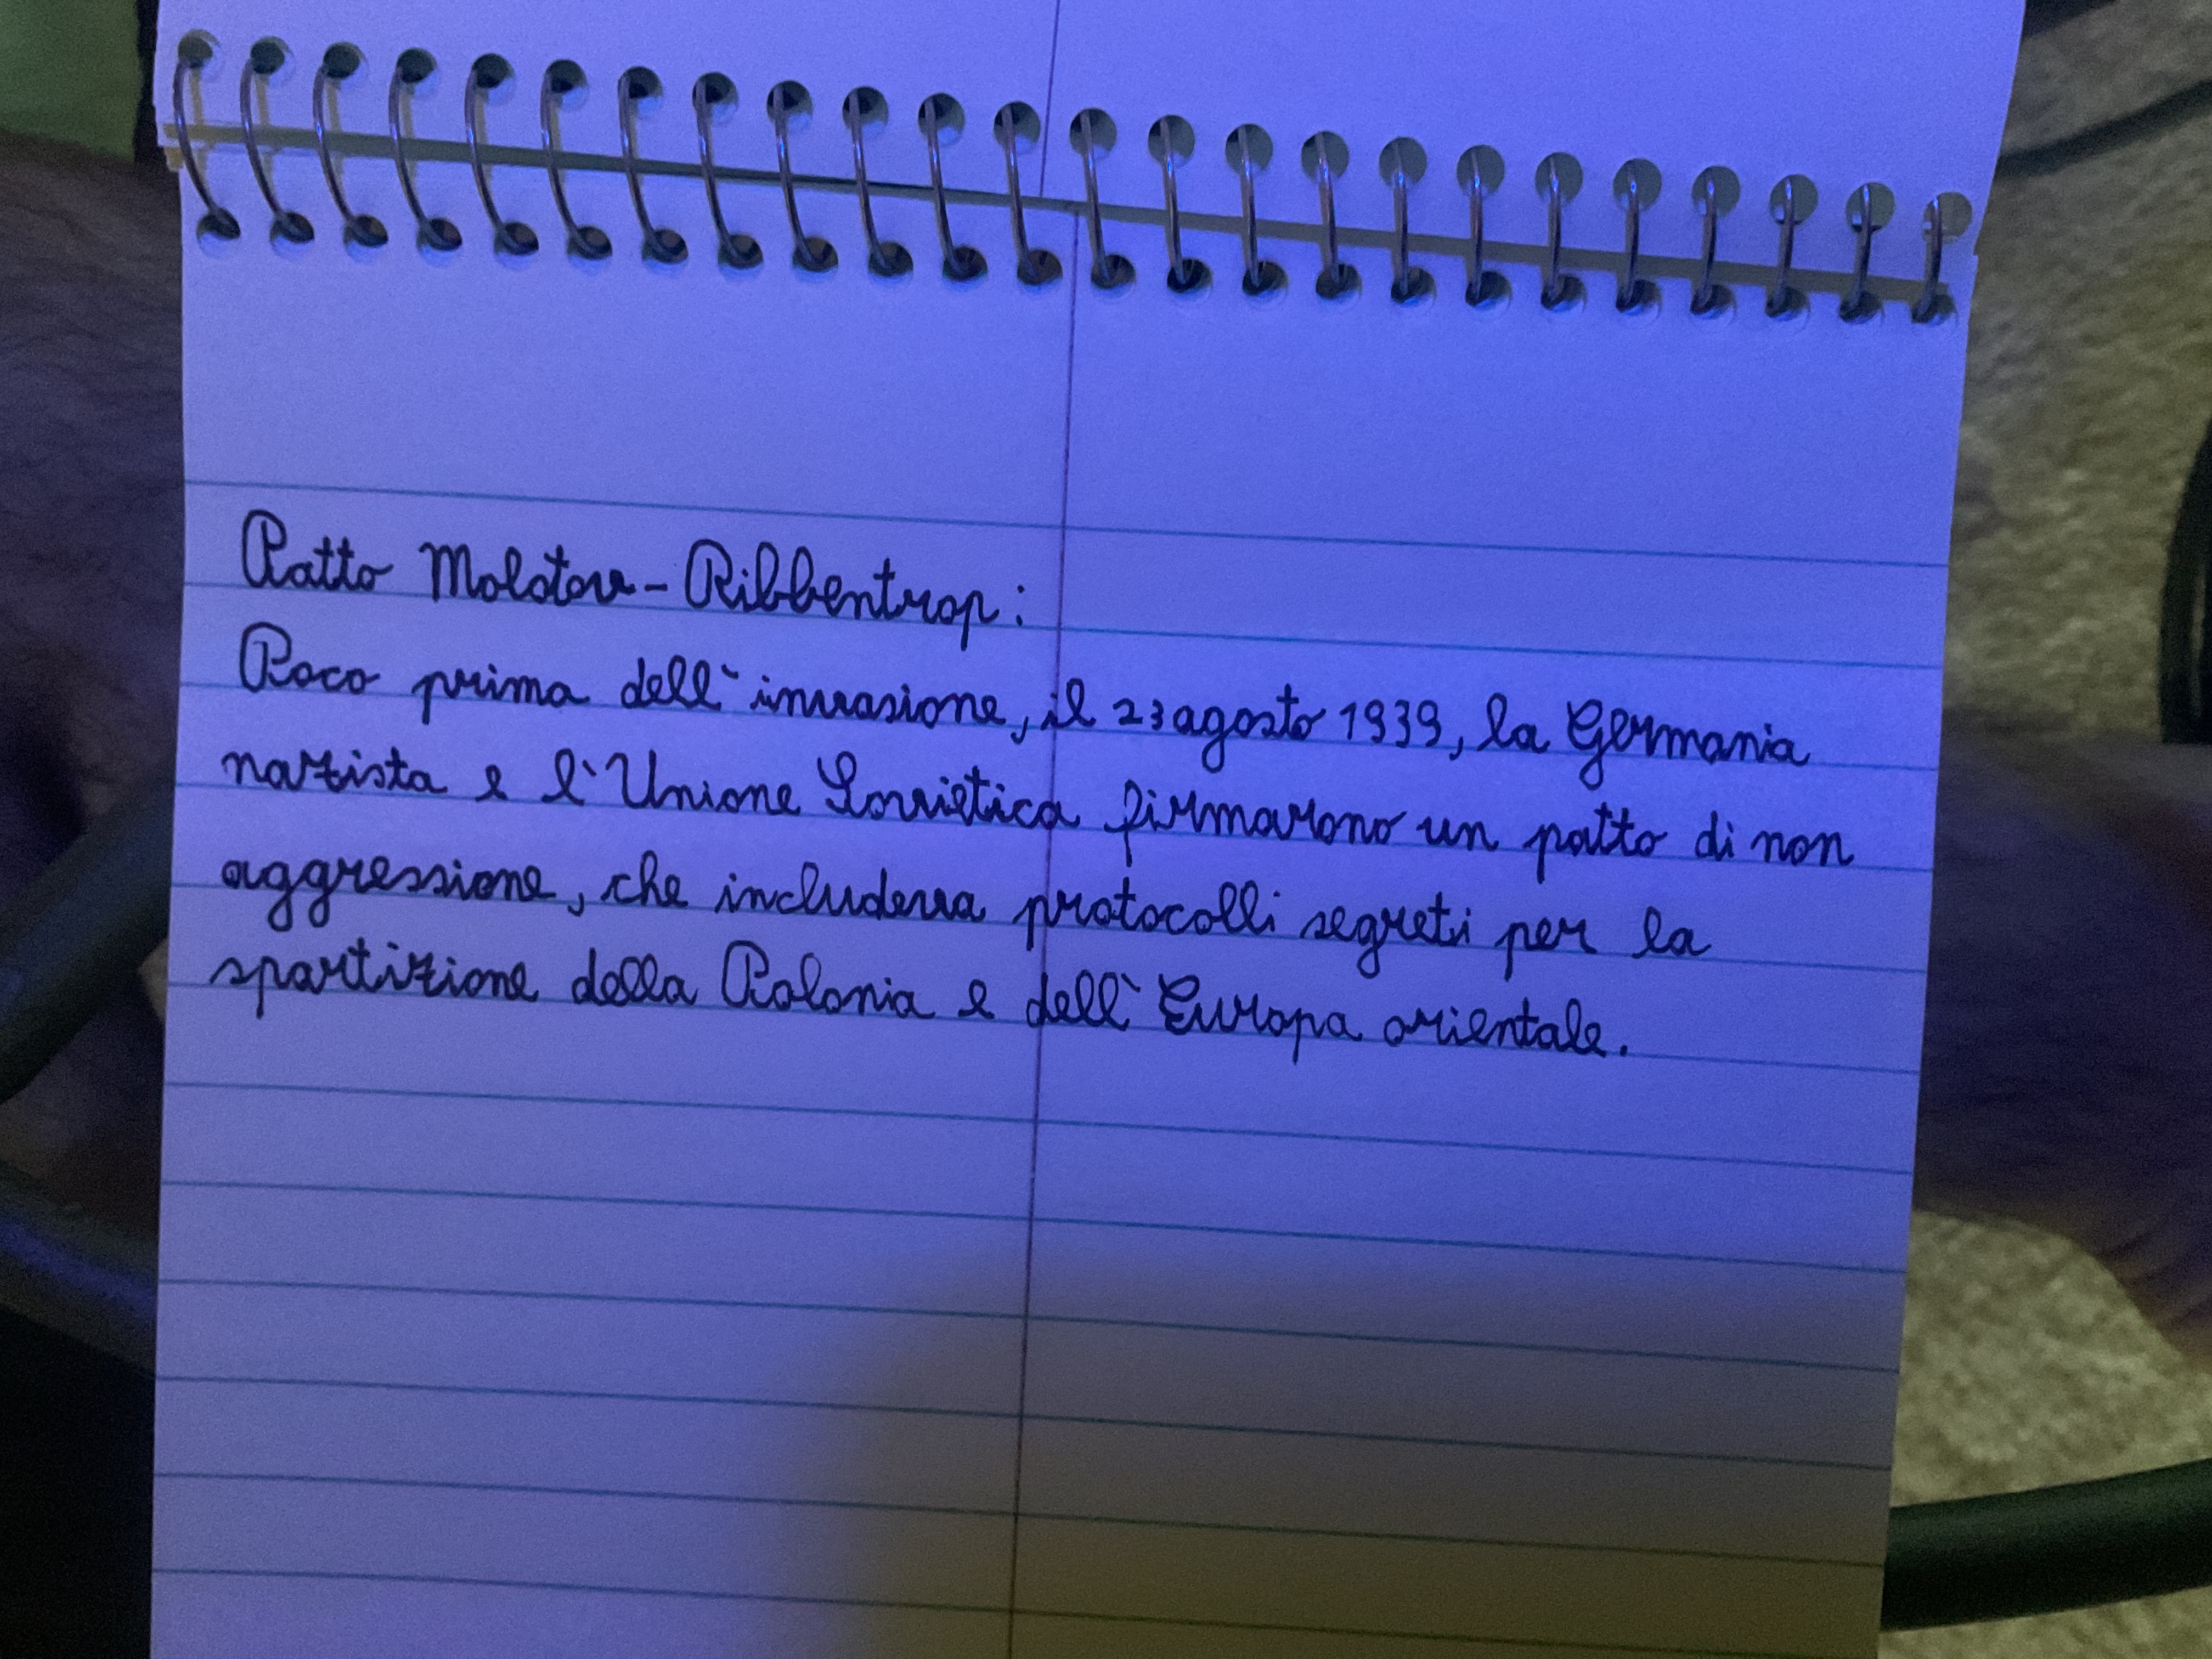 Patto Molotov-Ribbentrop:
Poco prima dell'invasione, il 23 agosto 1939, la Germania
nazista e l'Unione Sovietica firmarono un patto di non
aggressione, che includeva protocolli segreti per la
spartizione della Polonia e dell'Europa orientale.